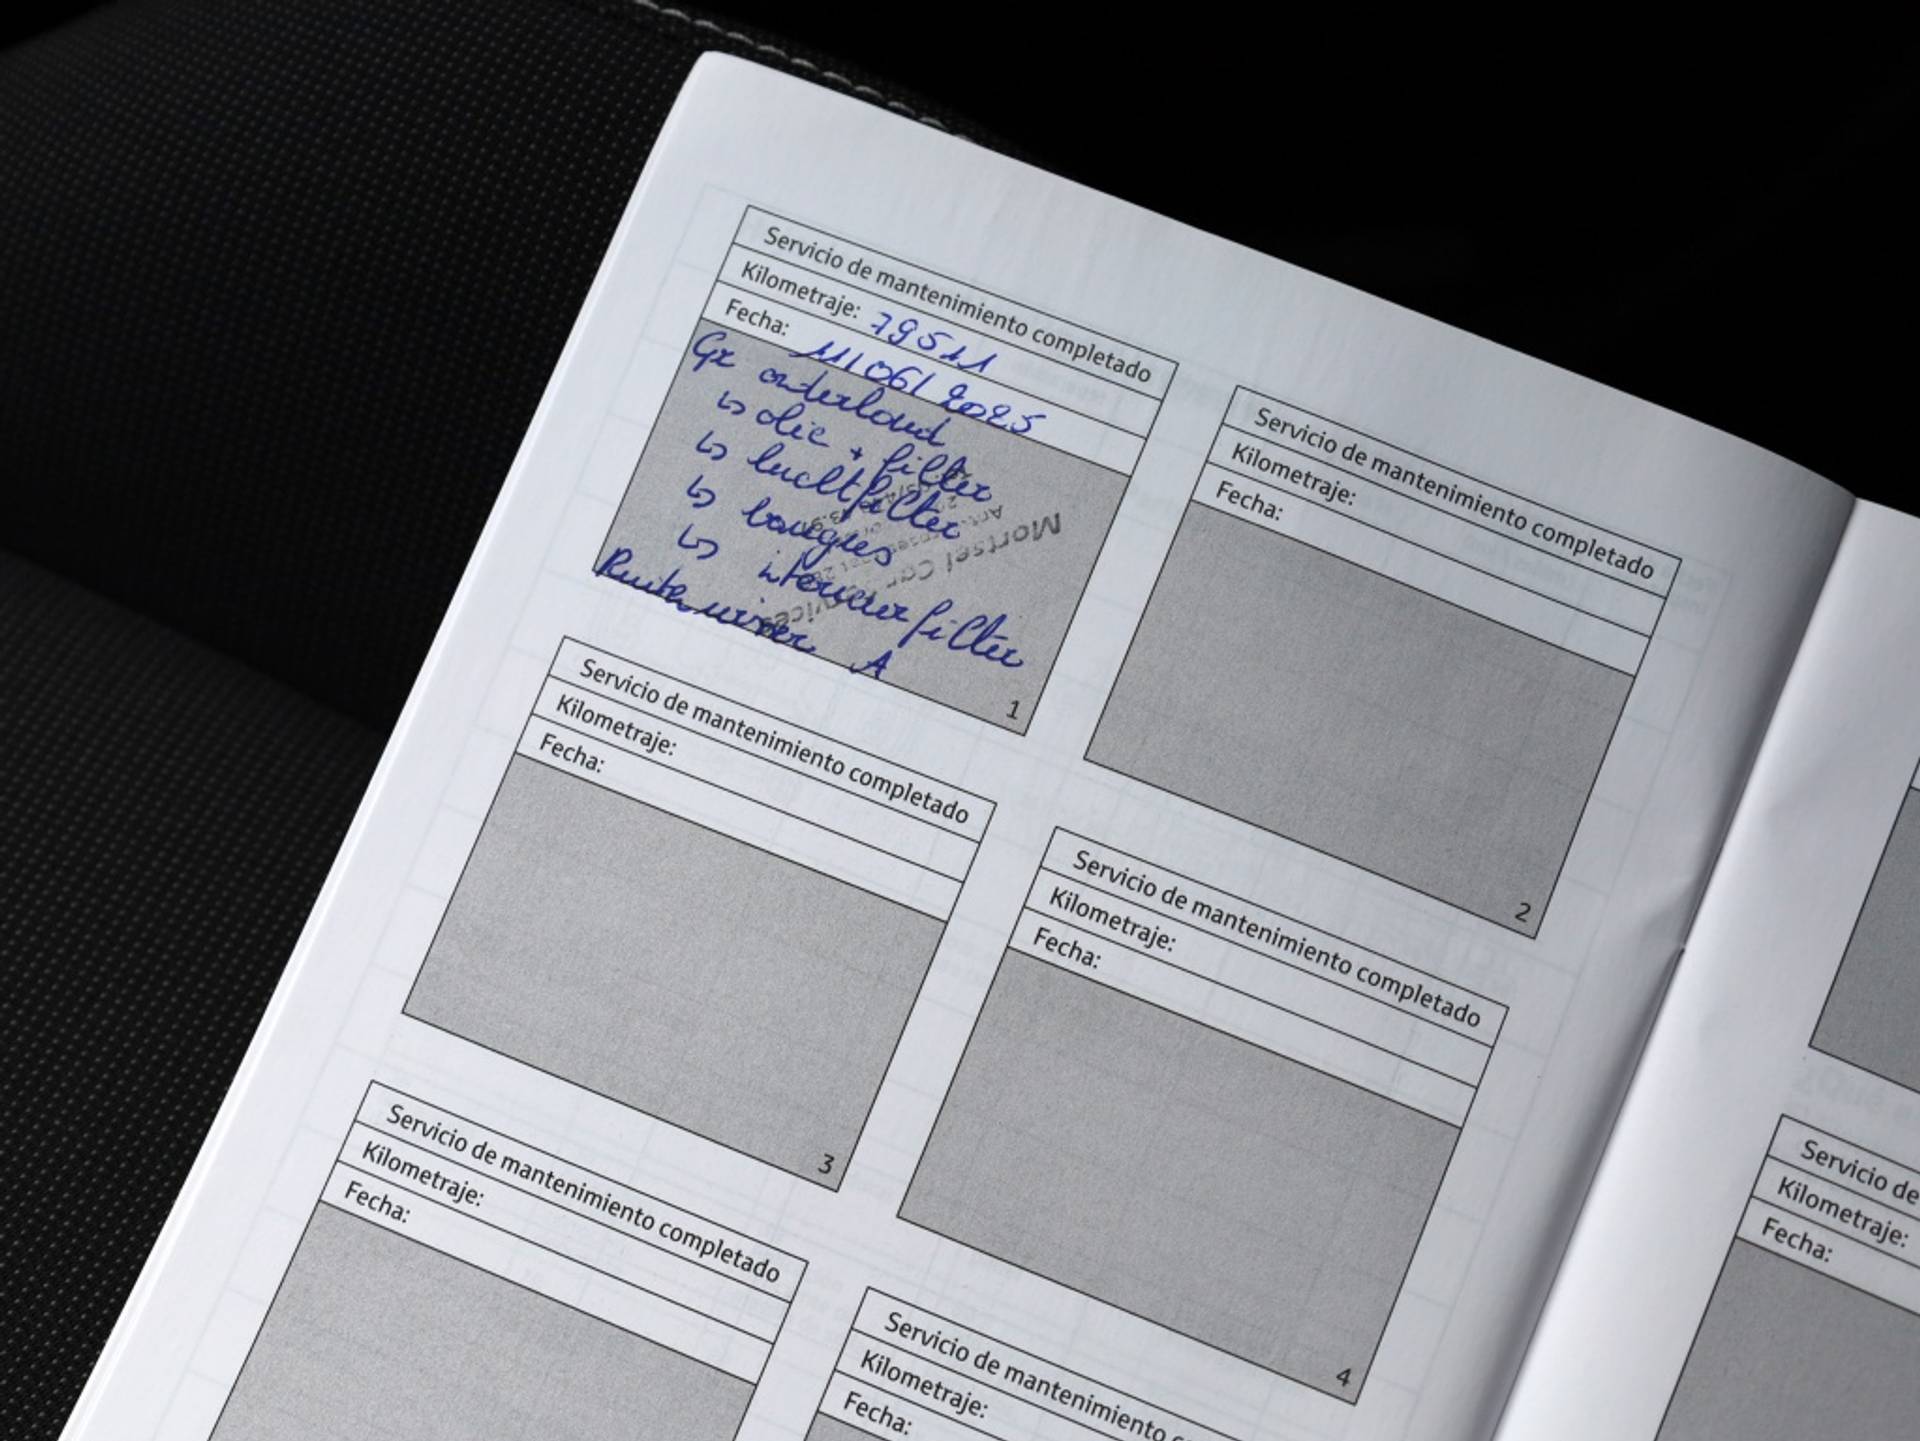 Servicio de mantenimiento completado
Kilometraje: 79511
Fecha: 11/06/2025
Gr onderhoud
↳ olie + filter
↳ luchtfilter
↳ bougies
↳ interieurfilter
Ruitenwisser A
Mortsel Car Services
1
Servicio de mantenimiento completado
Kilometraje:
Fecha:
2
Servicio de mantenimiento completado
Kilometraje:
Fecha:
3
Servicio de mantenimiento completado
Kilometraje:
Fecha:
4
Servicio de mantenimiento completado
Kilometraje:
Fecha:
Servicio de mantenimiento
Kilometraje:
Fecha:
Servicio de
Kilometraje:
Fecha: